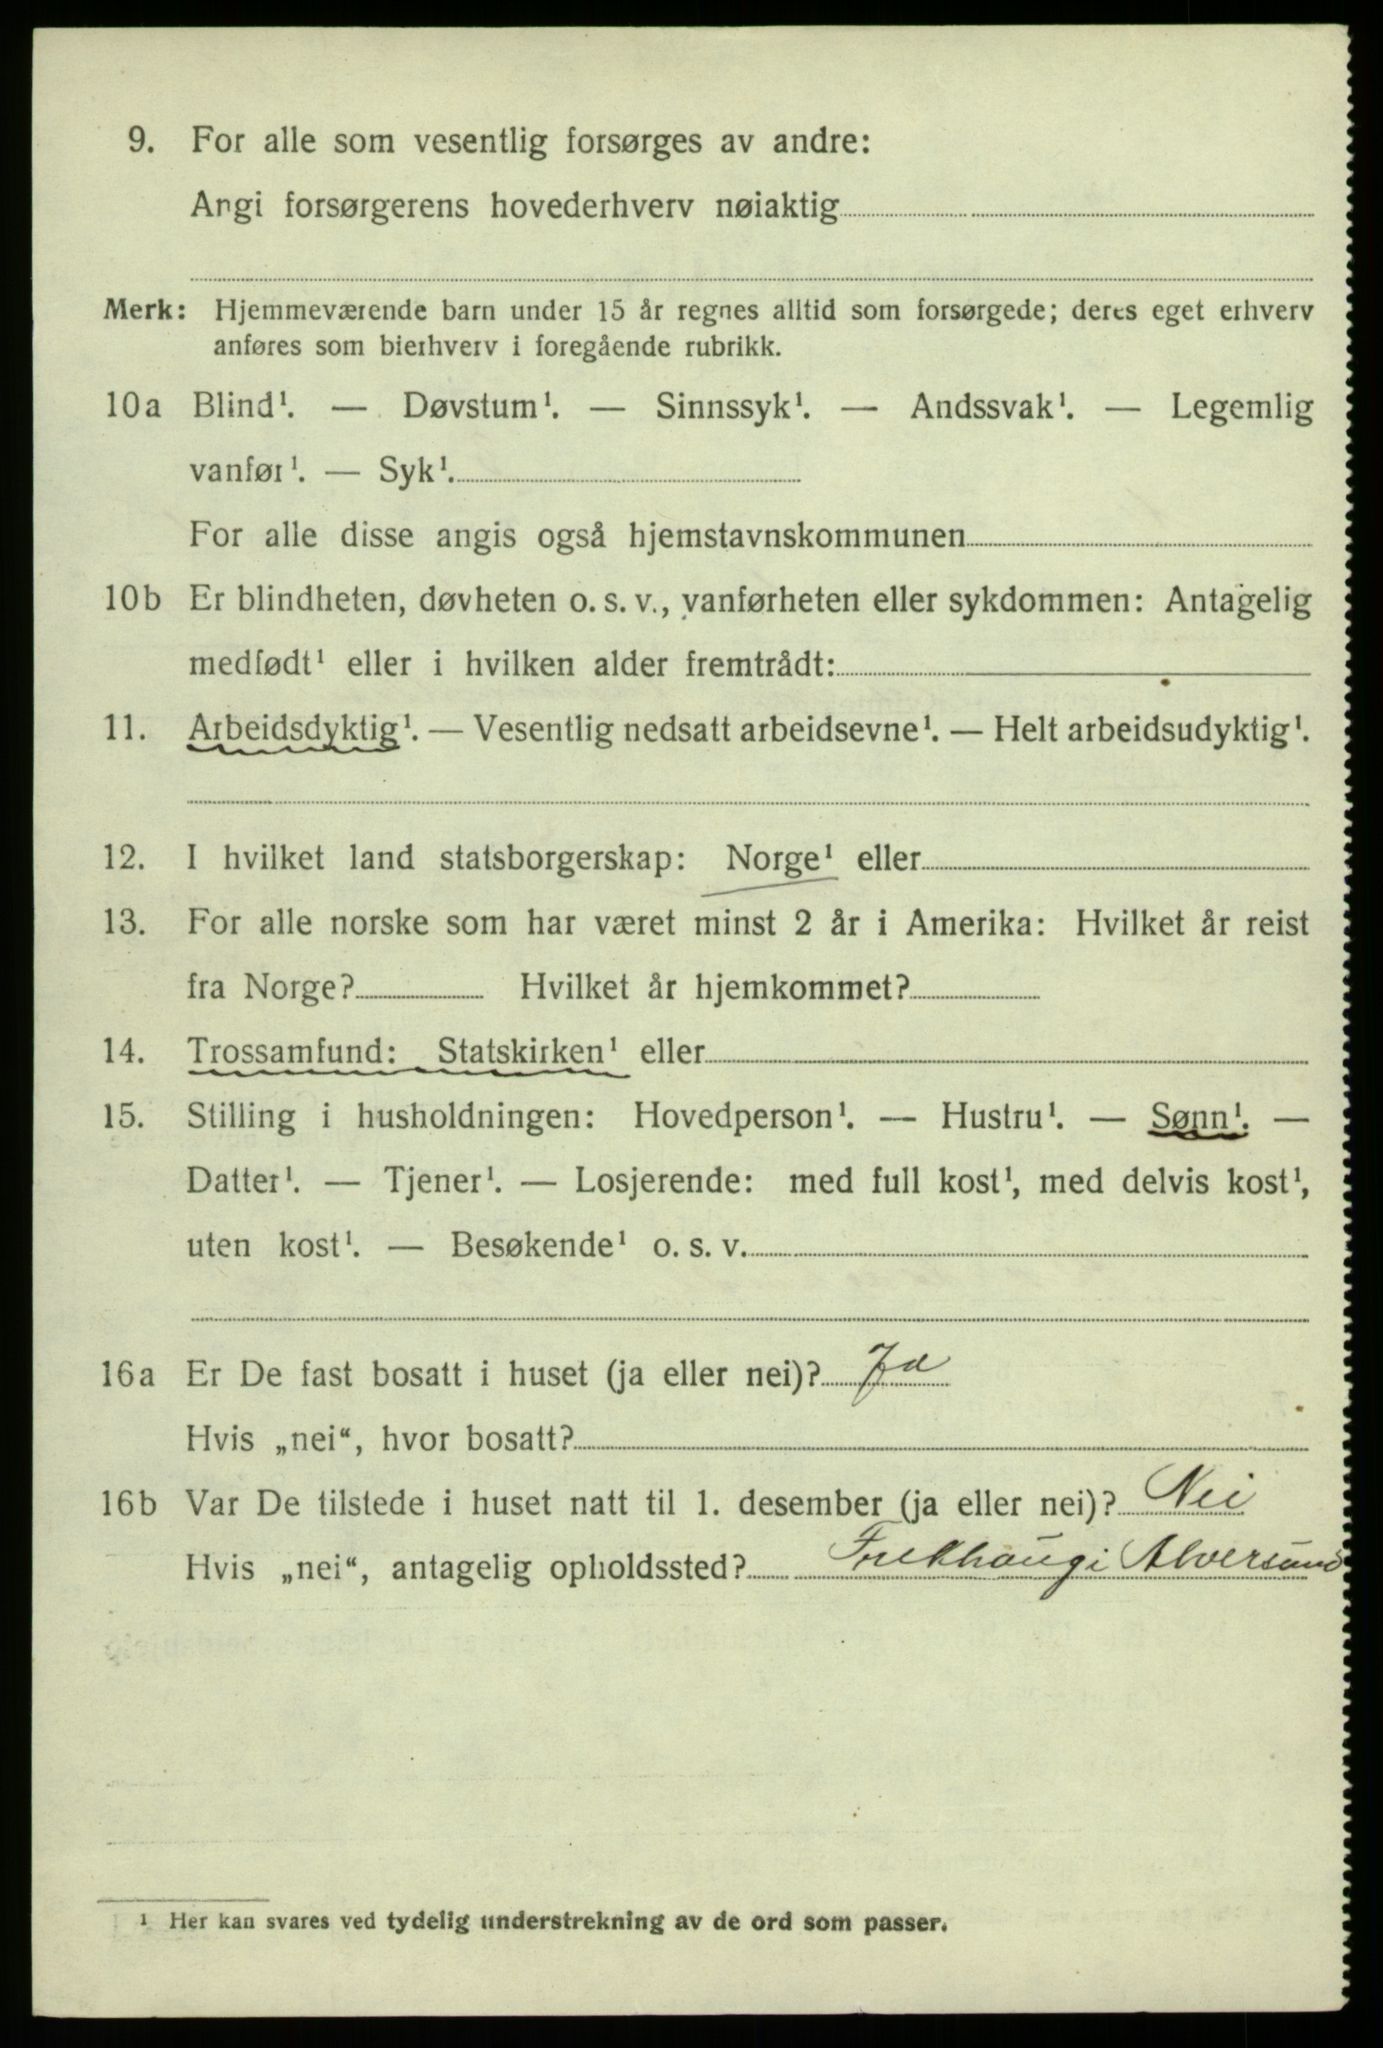 9. For alle som vesentlig forsørges av andre:
Angi forsørgerens hovederhverv nøiaktig
Merk: Hjemmeværende barn under 15 år regnes alltid som forsørgede; deres eget erhverv
anføres som bierhverv i foregående rubrikk.
10a Blind¹. — Døvstum¹. — Sinnssyk¹. — Andssvak¹. — Legemlig
vanfør¹. — Syk¹.
For alle disse angis også hjemstavnskommunen
10b Er blindheten, døvheten o. s. v., vanførheten eller sykdommen: Antagelig
medfødt¹ eller i hvilken alder fremtrådt:
11. Arbeidsdyktig¹. — Vesentlig nedsatt arbeidsevne¹. — Helt arbeidsudyktig¹.
12. I hvilket land statsborgerskap: Norge¹ eller
13. For alle norske som har været minst 2 år i Amerika: Hvilket år reist
fra Norge? Hvilket år hjemkommet?
14. Trossamfund: Statskirken¹ eller
15. Stilling i husholdningen: Hovedperson¹. — Hustru¹. — Sønn¹. —
Datter¹. — Tjener¹. — Losjerende: med full kost¹, med delvis kost¹,
uten kost¹. — Besøkende¹ o. s. v.
16a Er De fast bosatt i huset (ja eller nei)? Ja
Hvis „nei“, hvor bosatt?
16b Var De tilstede i huset natt til 1. desember (ja eller nei)? Nei
Hvis „nei“, antagelig opholdssted? Frekhaug i Alversund
¹ Her kan svares ved tydelig understrekning av de ord som passer.